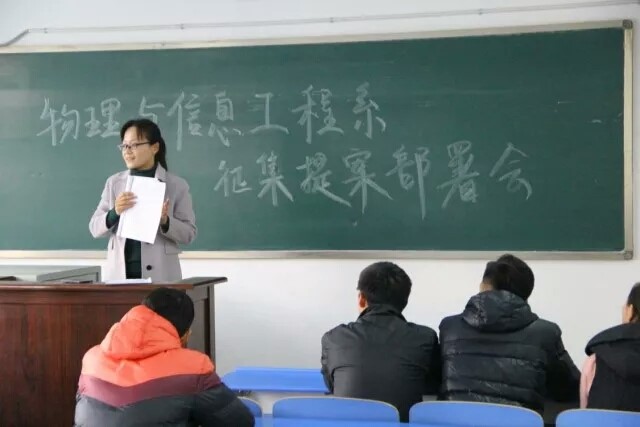 物理与信息工程系
征集提案部署会